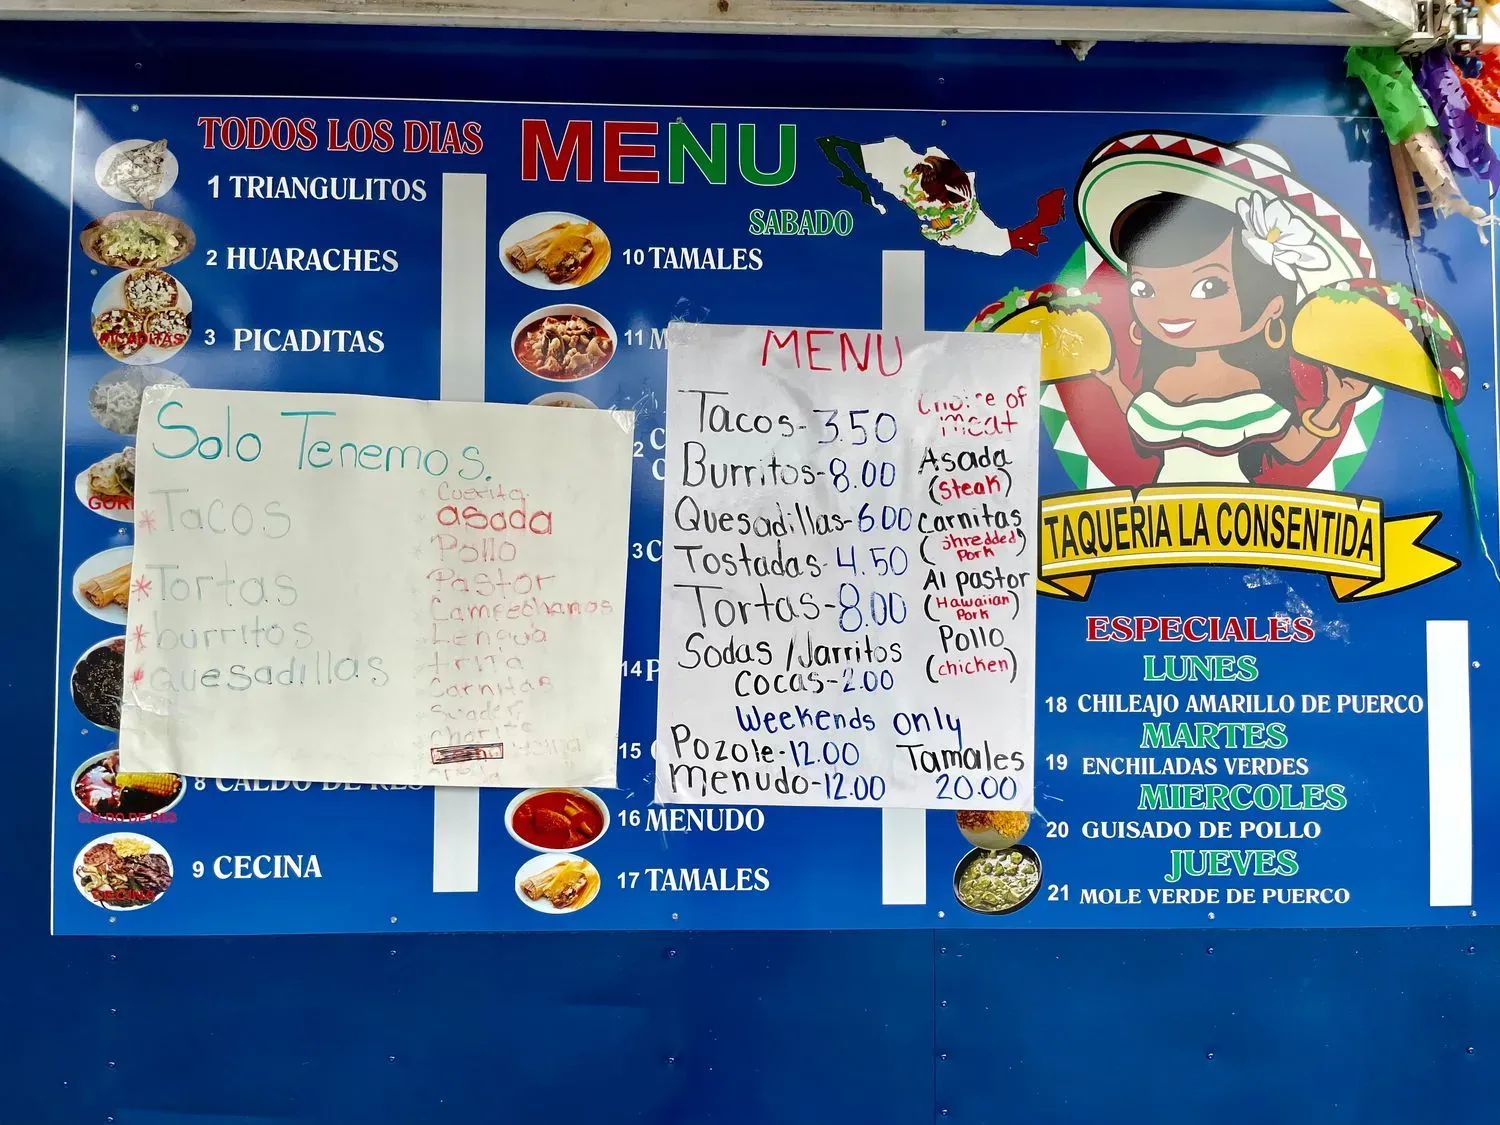 TODOS LOS DIAS
1 TRIANGULITOS
2 HUARACHES
3 PICADITAS
PICADITAS
GOR
8 CALDO DE RES
CALDO DE RES
9 CECINA
CECINA
MENU
SABADO
10 TAMALES
11 M
2 C
C
3 C
14 P
15
16 MENUDO
17 TAMALES
Solo Tenemos.
* Tacos
* Tortas
* burritos
* quesadillas
Cuerita
asada
Pollo
Pastor
Campechanos
Lengua
tripa
Carnitas
Suader
MENU
Tacos- 3.50
Burritos-8.00
Quesadillas-6.00
Tostadas-4.50
Tortas-8.00
Sodas/Jarritos
Cocas-2.00
Choice of
meat
Asada
(Steak)
Carnitas
(shredded
Pork)
Al pastor
(Hawaiian
Pork)
Pollo
(chicken)
Weekends only
Pozole-12.00
Menudo-12.00
Tamales
20.00
TAQUERIA LA CONSENTIDA
ESPECIALES
LUNES
18 CHILEAJO AMARILLO DE PUERCO
MARTES
19 ENCHILADAS VERDES
MIERCOLES
20 GUISADO DE POLLO
JUEVES
21 MOLE VERDE DE PUERCO